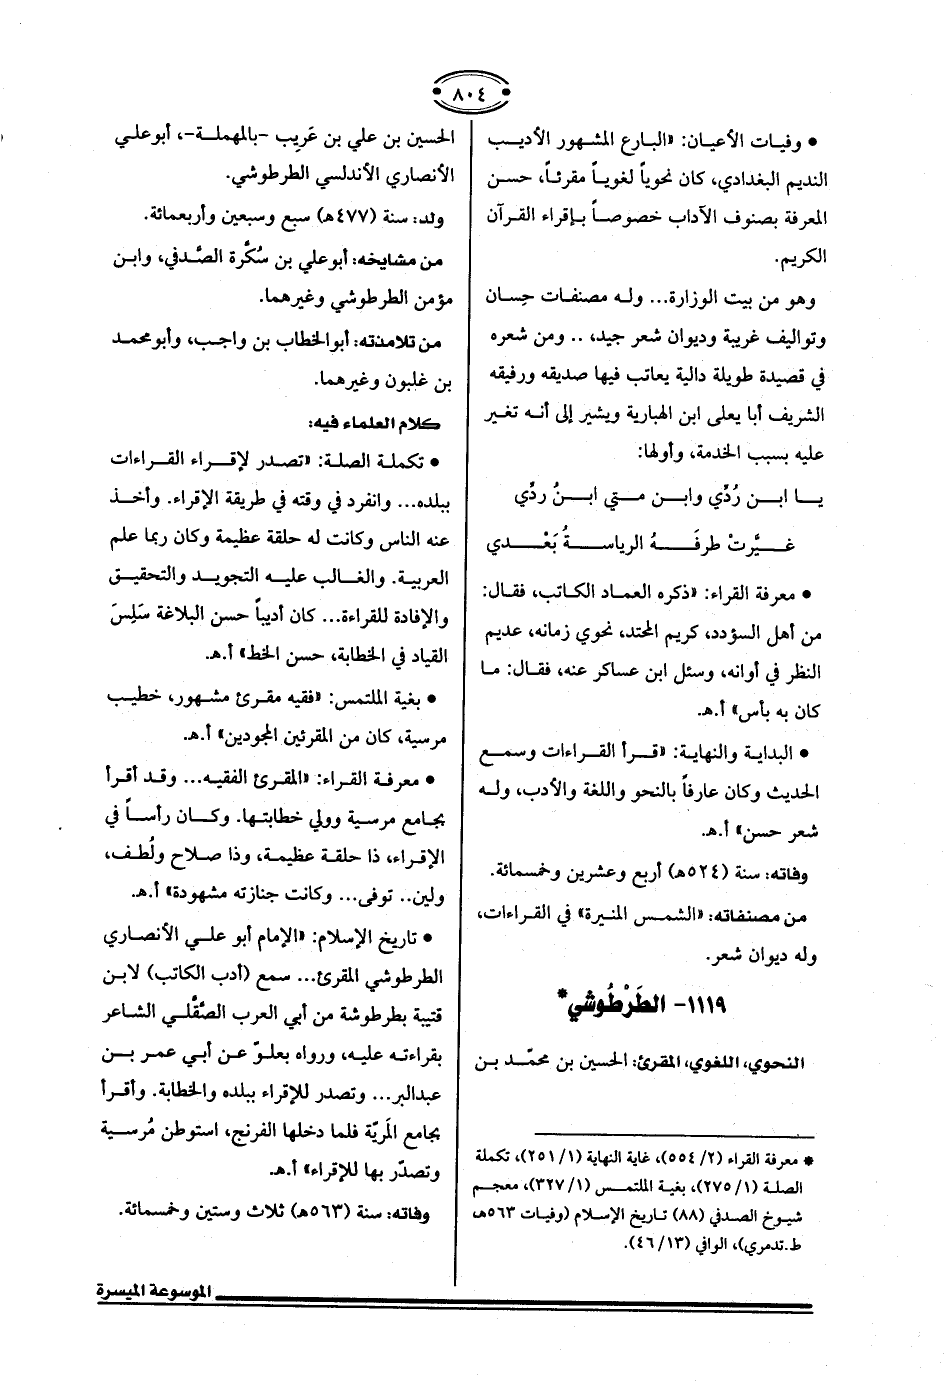 ٨٠٤
• وفيات الأعيان: «البارع المشهور الأديب
النديم البغدادي، كان نحوياً لغوياً مقرئاً، حسن
المعرفة بصنوف الآداب خصوصاً بإقراء القرآن
الكريم.
وهو من بيت الوزارة... وله مصنفات حِسان
وتواليف غريبة وديوان شعر جيد، .. ومن شعره
في قصيدة طويلة دالية يعاتب فيها صديقه ورفيقه
الشريف أبا يعلى ابن الهبارية ويشير إلى أنه تغير
عليه بسبب الخدمة، وأولها:
يا ابن رُدِّي وابن متي ابنُ ردِّي
غيَّرتْ طرفَهُ الرياسةُ بَعْدي
• معرفة القراء: «ذكره العماد الكاتب، فقال:
من أهل السؤدد، كريم المحتد، نحوي زمانه، عديم
النظر في أوانه، وسئل ابن عساكر عنه، فقال: ما
كان به بأس» أ.هـ.
• البداية والنهاية: «قرأ القراءات وسمع
الحديث وكان عارفاً بالنحو واللغة والأدب، وله
شعر حسن» أ.هـ.
وفاته: سنة (٥٢٤هـ) أربع وعشرين وخمسمائة.
من مصنفاته: «الشمس المنيرة» في القراءات،
وله ديوان شعر.
١١١٩- الطَرْطُوشي*
النحوي، اللغوي، المقرئ: الحسين بن محمّد بن
* معرفة القراء (٢/ ٥٥٤)، غاية النهاية (١/ ٢٥١)، تكملة
الصلة (١/ ٢٧٥)، بغية الملتمس (١/ ٣٢٧)، معجم
شيوخ الصدفي (٨٨) تاريخ الإسلام (وفيات ٥٦٣هـ،
ط.تدمري)، الوافي (١٣/ ٤٦).
الحسين بن علي بن عَريب -بالمهملة-، أبوعلي
الأنصاري الأندلسي الطرطوشي.
ولد: سنة (٤٧٧هـ) سبع وسبعين وأربعمائة.
من مشايخه: أبوعلي بن سُكَّرة الصَّدفي، وابن
مؤمن الطرطوشي وغيرهما.
من تلامذته: أبوالخطاب بن واجب، وأبومحمد
بن غلبون وغيرهما.
كلام العلماء فيه:
• تكملة الصلة: «تصدر لإقراء القراءات
ببلده... وانفرد في وقته في طريقة الإقراء. وأخذ
عنه الناس وكانت له حلقة عظيمة وكان ربما علم
العربية. والغالب عليه التجويد والتحقيق
والإفادة للقراءة... كان أديباً حسن البلاغة سَلِسَ
القياد في الخطابة، حسن الخط» أ.هـ.
• بغية الملتمس: «فقيه مقرئ مشهور، خطيب
مرسية، كان من المقرئين المجودين» أ.هـ.
• معرفة القراء: «المقرئ الفقيه... وقد أقرأ
بجامع مرسية وولي خطابتها. وكان رأساً في
الإقراء، ذا حلقة عظيمة، وذا صلاح ولُطف،
ولين.. توفى... وكانت جنازته مشهودة» أ.هـ.
• تاريخ الإسلام: «الإمام أبو علي الأنصاري
الطرطوشي المقرئ... سمع (أدب الكاتب) لابن
قتيبة بطرطوشة من أبي العرب الصَّقَّلي الشاعر
بقراءته عليه، ورواه بعلوّ عن أبي عمر بن
عبدالبر... وتصدر للإقراء ببلده والخطابة. وأقرأ
بجامع المَريّة فلما دخلها الفرنج، استوطن مُرسية
وتصدّر بها للإقراء» أ.هـ.
وفاته: سنة (٥٦٣هـ) ثلاث وستين وخمسمائة.
الموسوعة الميسرة